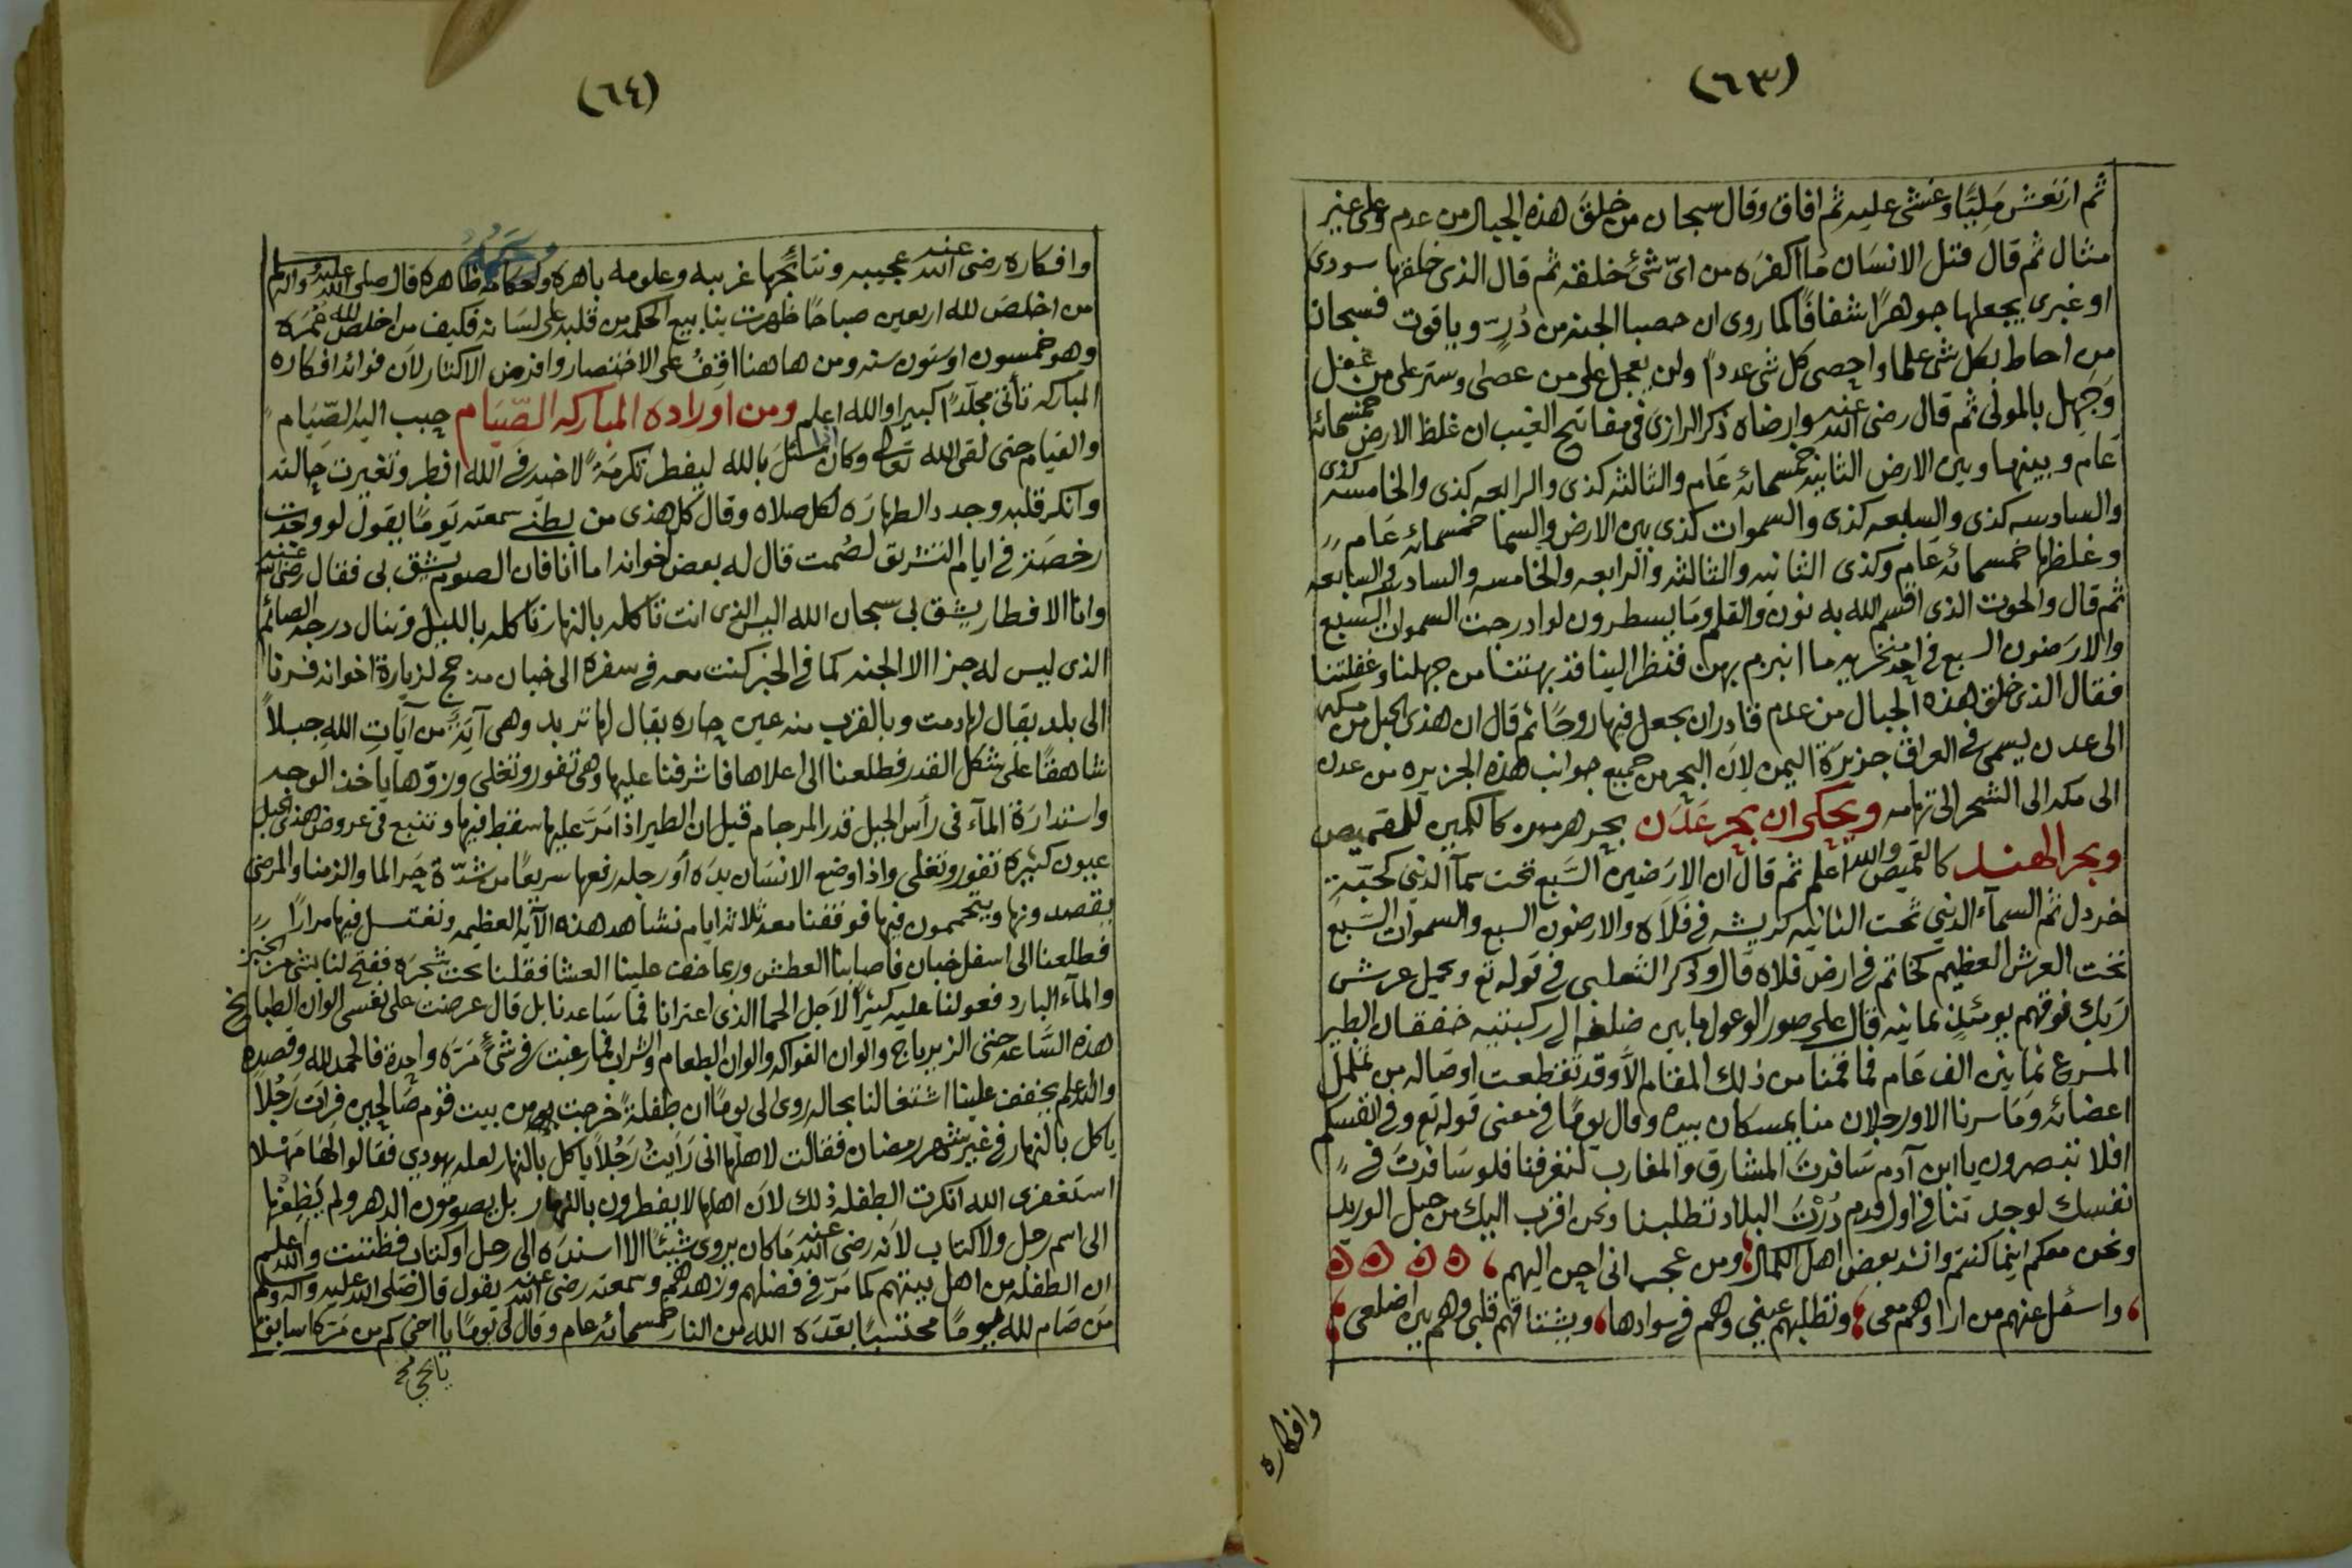 (٦٣)
ثم ارتعش مليًّا وغشي عليه ثم افاق وقال سبحان من خلق هذه الجبال من عدم وعلى غير
مثال ثم قال قتل الانسان ما اكفره من اىّ شىٔ خلقه ثم قال الذى خلقها سودى
او غبرى يجعلها جوهرًا شفافًا كما روى ان حصبا الجنه من دُرّ وياقوت فسبحان
من احاط بكل شى علما واحصى كل شى عددًا ولن يعجل على من عصى وستر على من غفل
وَجهل بالمولى ثم قال رضى الله عنه وارضاه ذكر الرازى فى مفاتح الغيب ان غلظ الارض خمسمائه
عَام وبينها وبين الارض الثانيه خمسمائه عَام والثالثه كذى والرابعه كذى والخامسه كذى
والسادسه كذى والسابعه كذى والسموات كذى بين الارض والسما خمسمائه عَام
وغلظها خمسمائه عَام وكذى الثانيه والثالثه والرابعه والخامسه والسادسه والسابعه
ثم قال والحوت الذى اقسم الله به نون والقلم ومَا يسطرون لو ادرجت السموات السبع
والارضون السبع فى احد منخريه ما انبرم بهن فنظر الينا قد بهتنا من جهلنا وغفلتنا
فقال الذى خلق هذه الجبال من عدم قادر ان يجعل فيها روحًا ثم قال ان هذى الجبل من مكه
الى عدن يسمى فى العراق جزيرة اليمن لان البحر من جميع جوانب هذه الجزيره من عدن
الى مكه الى الشحر الى تهامه ويحكى ان بحر عَدَن بحر هرمون كالكمين للقميص
وبحر الهند كالقميص والله اعلم ثم قال ان الارضين السّبع تحت سمآ الدنيى كحبّة
خردل ثم السمآء الدنيى تحت الثانيه كريشه فى فلاه والارضون السبع والسموات السّبع
تحت العرش العظيم كخاتم فى ارض فلاه قال وذكر الثعلبى فى قوله تع ويحمل عرش
ربك فوقهم يومئذٍ ثمانيه قال على صور الوعول ما بين ضلفه الى ركبتيه خفقان الطير
المسرع ثمانين الف عَام فما قمنا من ذلك المقام الاّ وقد تقطعت اوصاله من تململ
اعضائه وَمَا سرنا الا ورجلان منا يمسكان بيده وقال يومًا فى معنى قوله تع وفى انفسكم
افلا تبصرون يا ابن آدم سَافرتَ المشارق والمغارب لتعرفنا فلو سَافرتَ فى
نفسك لوجدتنا فى اول قدم دُرْتَ البلاد تطلبنا ونحن اقرب اليك من حبل الوريد
ونحن معكم اينما كنتم وانشد بعض اهل الكمال ومن عجب انى احن اليهم
واسئل عنهم من ارا وهم معى وتطلبهم عينى وهم فى سوادها ويشتاقهم قلبى وهم بين اضلعى
وافكاره
(٦٤)
وافكاره رضى الله عنه عجيبه ونتائجها غريبه وعلومه باهره واحكامه ظاهره قال صلى الله عليه واله وسلم
من اخلصَ لله اربعين صباحًا ظهرت ينابيع الحكمه من قلبه على لسَانه فكيف من اخلص لله عُمُرَه
وهو خمسون او ستون سنه ومن هاهنا اقِفُ على الاختصار وافرض الاكثار لاَن فوائد افكاره
المباركه تأتى مجلّدًا كبيرا والله اعلم ومن اوراده المباركه الصّيَام حبب اليه الصّيَام
والقيام حتى لقى الله تعالى وكان اذا سئلَ بالله ليفطر تكرمَةً لاخيه فى الله افطر وتغيرت حالته
وانكر قلبه وجدد الطهارَه لكل صلاه وقال كل هذى من بطنى سمعته يَومًا يقول لو وجدت
رخصَة فى ايام التشريق لصُمت قال له بعض اخوانه اما انا فان الصوم يشق بى فقال رضى الله عنه
وانا الافطار يشق بى سبحان الله اليس الذى انت تاكله بالنهار تاكله بالليل وتنال درجه الصائم
الذى ليس له جزا الا الجنه كما فى الخبر كنت معه فى سفره الى خبان مذحج لزيارة اخوانه فسرنا
الى بلد يقال لها دمت وبالقرب منه عين حاره يقال لها تريد وهى آيَةٌ من آيَاتِ اللهِ جبلاً
شاهقًا على شكل القدر فطلعنا الى اعلاها فاشرفنا عليها وهى تفور وتغلى وزوّها ياخذ الوجه
واستدارَة المآء فى رأس الجبل قدر المرجام قيل ان الطير اذا مَرَّ عليها سقط فيها وتنبع فى عروض هذى الجبل
عيون كثيره تفور وتغلى واذا وضع الانسَان يدَه أو رجله رفعها سريعًا من شدّة حَر الما والزمنا والمرضى
يقصدونها ويتحممون فيها فوقفنا معه ثلاثه ايام نشاهد هذه الآيه العظيمه ونغتسل فيها مرارًا
فطلعنا الى اسفل خبان فاصابنا العطش وربما خفت علينا العشا فقلنا تحت شجرَه ففتح لنا بشى من الخبز
والمآء البارد فعولنا عليه كثيرًا لاَجل الحما الذى اعترانا فما سَاعدنا بل قال عرضت على نفسى الوان الطبائخ
هذه السَّاعه حتى الزيرباج والوان الفواكه والوان الطعام والشراب فما رغبت فى شىٔ مَرّه واحدة فالحمد لله وقصده
والله اعلم يخفف علينا اشتغالنا بحاله روى لى يومًا ان طفلةً خرجت من بيت قوْم صَالحين فرأت رَجُلاً
ياكل بالنهار فى غير شهر رمضان فقالت لاهلها انى رَأيتُ رَجُلاً ياكل بالنهار لعله يهودي فقالوا لهَا مَهْلا
استغفرى الله انكرت الطفله ذلك لاَن اهلها لا يفطرون بالنهار بل يصومون الدهر ولم يَنظِمْها
الى اسم رجل ولا كتاب لاَنه رضى الله عنه مَا كان يروى شيئًا الا اسنده الى رجل او كتاب فظننت والله اعلم
ان الطفله من اهل بيتهم كما مَرّ فى فضلهم وزهدهم وسمعته رضى الله عنه يقول قال صَلى الله عليه واله وسلم
مَن صَام لله يومًا محتسبًا بعّدَه الله من النار خمسمائه عام وقال لى يومًا يا اخى كم من مَرّه اسابق